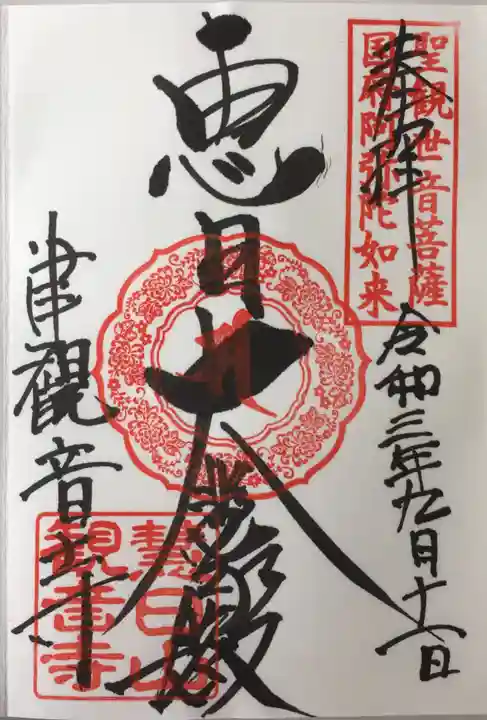 奉拝
聖観世音菩薩
国府阿弥陀如来
令和三年九月十一日
恵日大菩薩
津觀音寺
慧日山
観音寺